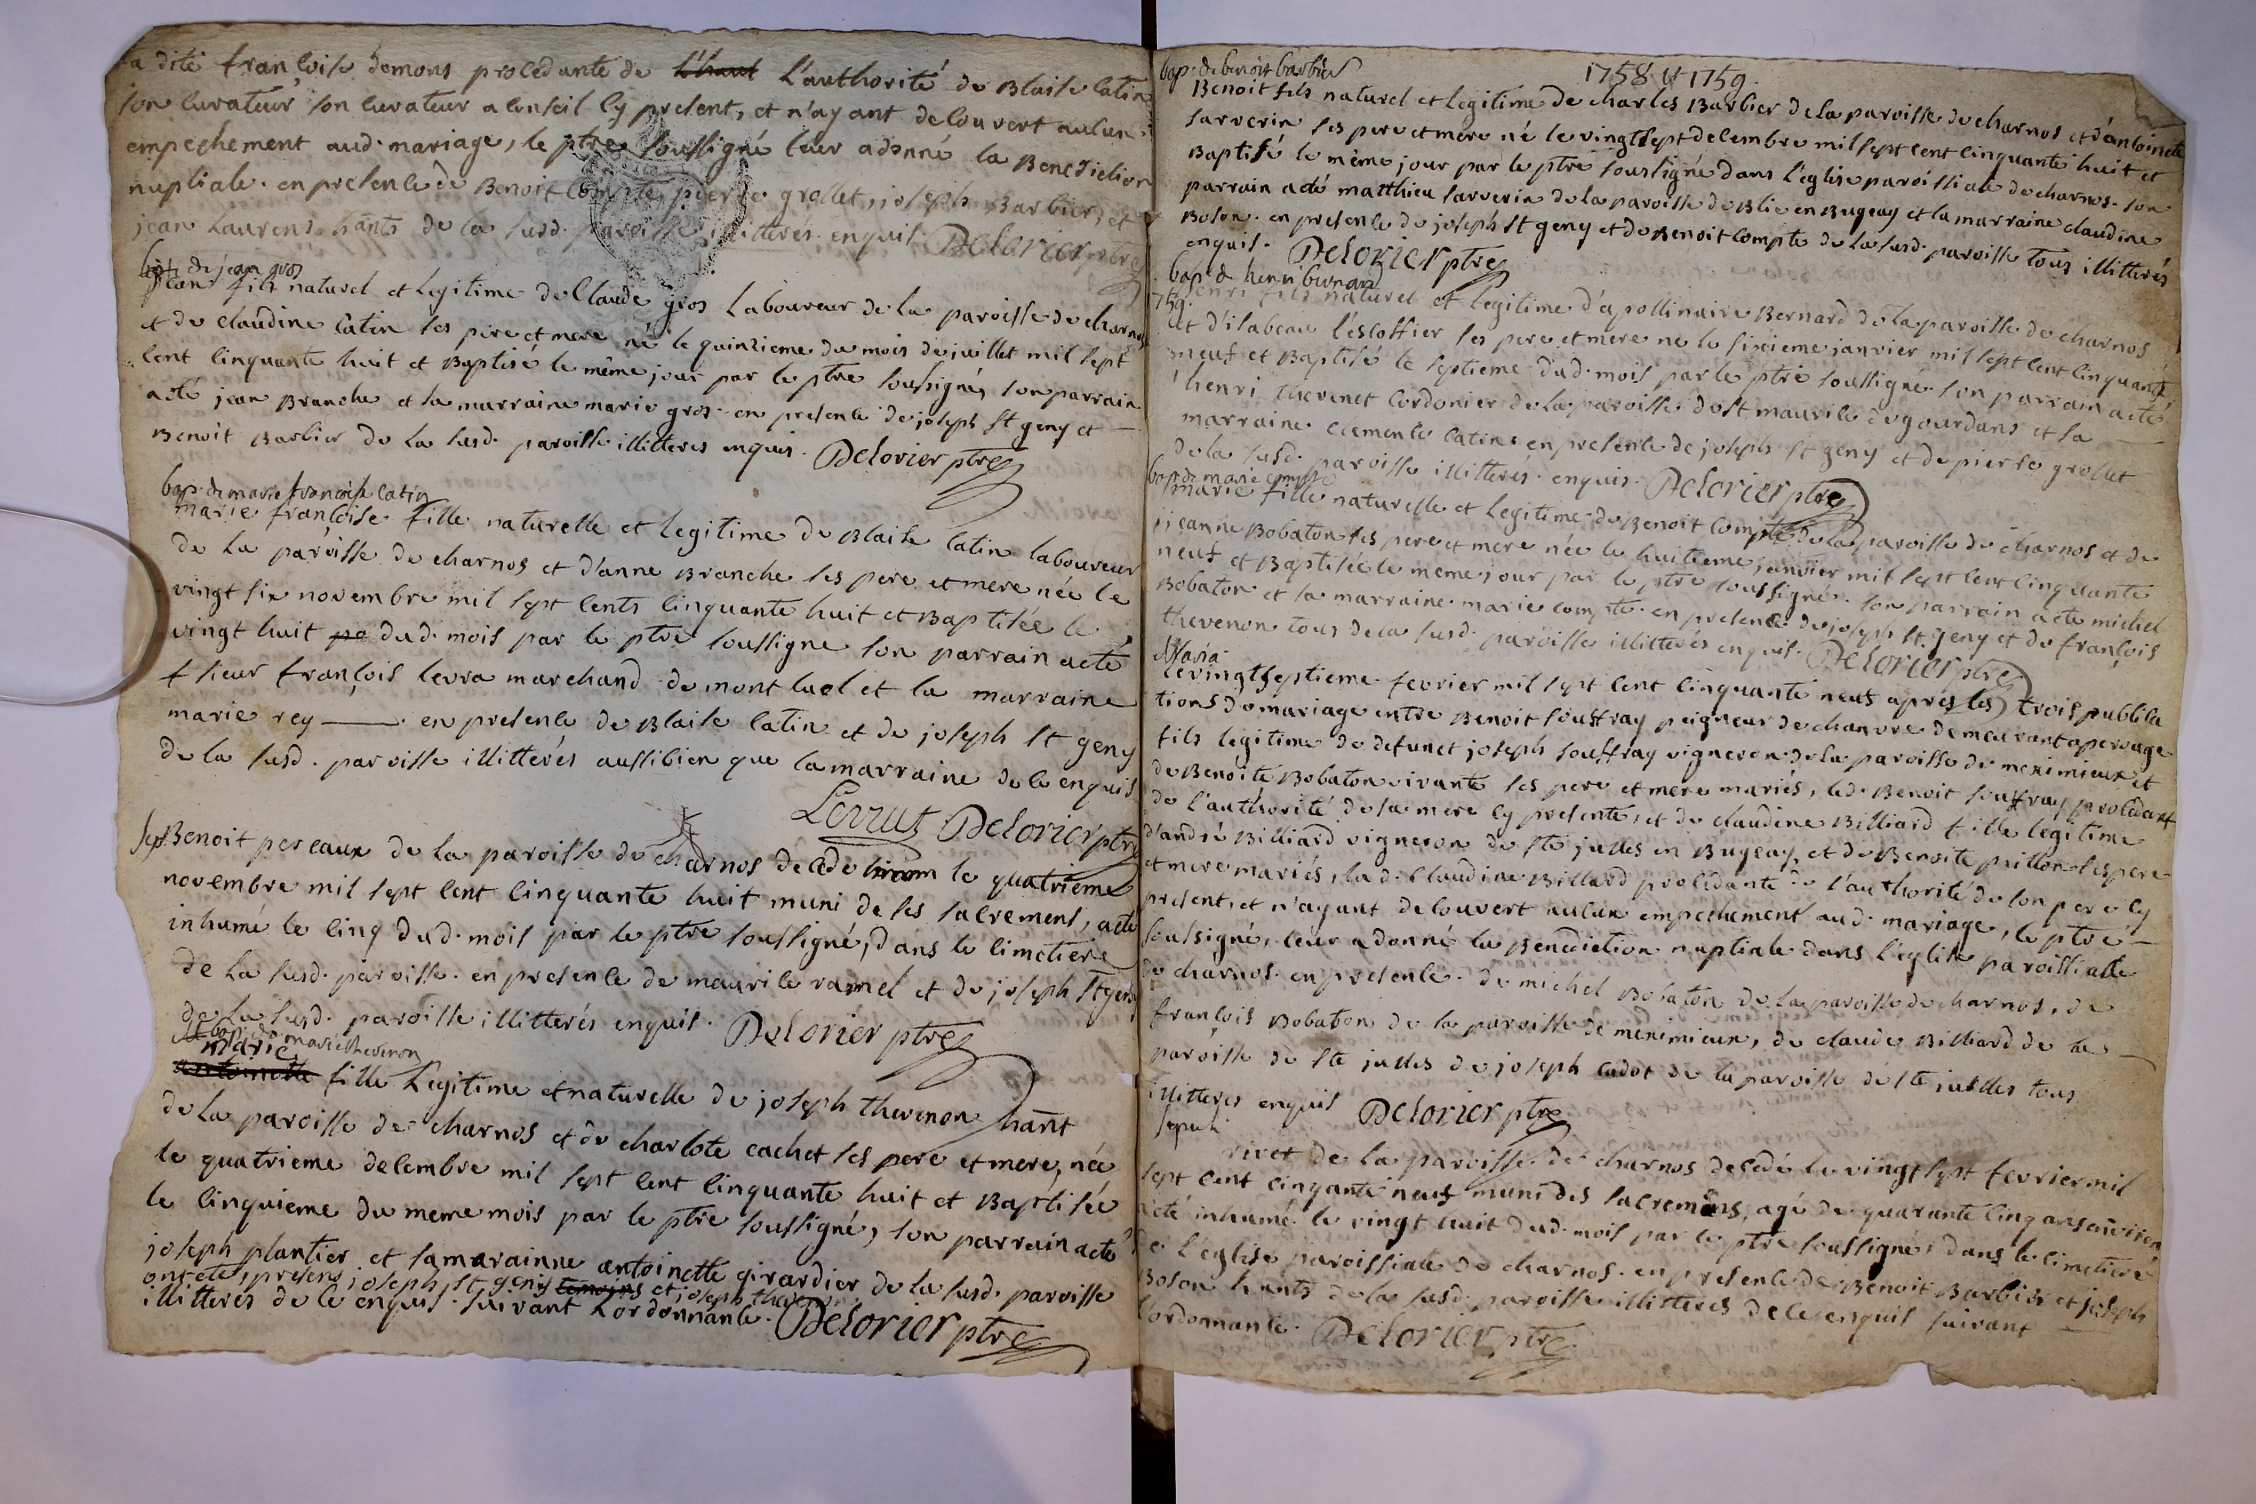 la dite françoise demons procedante de l'haut L'authorité de Blaise catin
son curateur son curateur a conseil cy present, et n'ayant decouvert aulun
empechement aud. mariage, le ptre soussigné leur adonné la Benediction
nuptiale. en presence de Benoit Compte, pierre grollet, joseph Barbier, et
jean Laurens hants de la susd. paroisse illitterés enquis. Delorier ptre
bap. de jean gros
jean fils naturel et legitime de Claude gros Laboureur de la paroisse de charnos
et de claudine catin ses pere et mere né le quinzieme du mois de juillet mil sept
cent cinquante huit et Baptisé le même jour par le ptre soussigné, son parrain
acté jean Branche et la marraine marie gros. en presence de joseph st geny et
Benoit Barbier de la susd. paroisse illitteres enquis. Delorier ptre
bap. de marie françoise catin
marie françoise fille naturelle et legitime de Blaise catin laboureur
de la paroisse de charnos et d'anne Branche ses pere et mere née le
vingt six novembre mil sept cents cinquante huit et Baptisée le
vingt huit pe dud. mois par le ptre soussigne son parrain acté
sieur françois levra marchand de montluel et la marraine
marie rey en presence de Blaise catin et de joseph st geny
de la susd. paroisse illitterés aussibien que la marraine de ce enquis
Levrat Delorier ptre
sep. Benoit perceaux de la paroisse de charnos decede le quatrieme
novembre mil sept cent cinquante huit muni de ses sacrements, acté
inhumé le cinq dud. mois par le ptre soussigné, dans le cimetiere
de la susd. paroisse. en presence de maurice ramel et de joseph st geny
de la susd. paroisse illitterés enquis. Delorier ptre
bap. de marie thevenon
marie
antoinette fille Legitime et naturelle de joseph thevenon hant
de la paroisse de charnos et de charlote cachet ses pere et mere, née
le quatrieme decembre mil sept cent cinquante huit et Baptisée
le cinquieme du meme mois par le ptre soussigné, son parrain acté
joseph plantier et samarainne antoinette girardier de la susd. paroisse
ont été presens joseph st geny temoins et joseph thevenon
illitterés de ce enquis suivant Lordonnance. Delorier ptre
1758 et 1759.
bap. de benoit barbier
Benoit fils naturel et legitime de charles Barbier de la paroisse de charnos et d'antoinete
sarverin ses pere et mere né le vingt sept decembre mil sept cent cinquante huit et
Baptisé le même jour par le ptre soussigné dans l'eglise paroissiale de charnos. son
parrain acté matthieu sarverin de la paroisse de Blie en Bugeay et la marraine claudine
Boson. en presence de joseph st geny et de Benoit compte de la susd. paroisse tous illitterés
enquis. Delorier ptre
bap. de henri bernard
759.
henri fils naturel et legitime d'apollinaire Bernard de la paroisse de charnos
et d'isabeau l'escoffier ses pere et mere né le sixieme janvier mil sept cent cinquante
neuf et Baptisé le septieme dud. mois par le ptre soussigné. son parrain acté
henri thevenet Cordonier de la paroisse de st maurice de gourdans et sa
marraine clemente catin. en presence de joseph st geny et de pierre grollet
de la susd. paroisse illitterés. enquis. Delorier ptre
bap. de marie compte
marie fille naturelle et legitime de Benoit Compte de la paroisse de charnos et de
jeanne Bobaton ses pere et mere née le huitieme janvier mil sept cent cinquante
neuf et Baptisée le meme jour par le ptre soussigné. son parrain acte michel
Bobaton et la marraine marie compte. en presence de joseph st geny et de françois
thevenon tous de la susd. paroisse illitterés enquis. Delorier ptre
Maria.
Le vingtseptieme fevrier mil sept cent cinquante neuf aprés les trois publica
tions de mariage entre Benoit souffray peigneur de chanvre demeurant aperouge
fils legitime de defunct joseph souffray vigneron de la paroisse de meximieux et
de Benoite Bobaton vivante ses pere et mere mariés, led. Benoit souffray procedant
de l'authorité de sa mere cy presente, et de claudine Billiard fille legitime
d'andré Billiard vigneron de ste julles en Bugeay, et de Benoite prillon ses pere
et mere mariés, lad. Claudine Billard procedante de l'authorité de son pere cy
present, et n'ayant decouvert aulun empechement aud. mariage, le ptre
soussigné, leur a donné la Benediction nuptiale dans l'eglise paroissiale
de charnos. en presence. de michel Bobaton de la paroisse de charnos, de
françois Bobaton de la paroisse de meximieux, de claude Billiard de la
paroisse de ste julles de joseph cadot de la paroisse de ste julles tous
illitterés enquis Delorier ptre
sepult.
rivet de la paroisse de charnos decedé le vingt sept fevrier mil
sept cent cinqante neuf muni des sacremens, agé de quarante cinq ans environ
acté inhumé le vingt huit dud. mois par le ptre soussigné, dans le cimetiere
de l'eglise paroissiale de charnos. en presence de Benoit Barbier et joseph
Boson hants de la susd. paroisse illitterés de ce enquis suivant
l'ordonnance. Delorier ptre